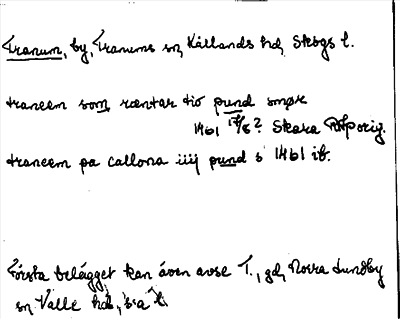 Tranum, by, Tranums sn, Kållands hd, Skbgs l.
traneem som ræntar tio pund smør
1461 17/8? Skara RAporig.
traneem pa callona iiij pund s 1461 ib.
Första belägget kan även avse T., gd, Norra Lundby
sn, Valle hd, s:a l.